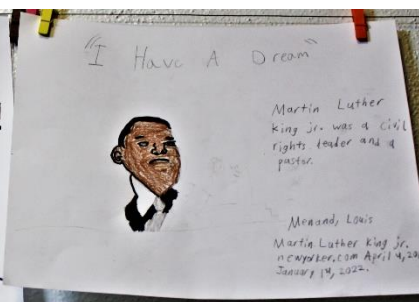 "I Have A Dream"
Martin Luther
king jr. was a civil
rights leader and a
pastor.
Menand, Louis
Martin Luther King jr.
newyorker.com April 4, 20
January 14, 2022.